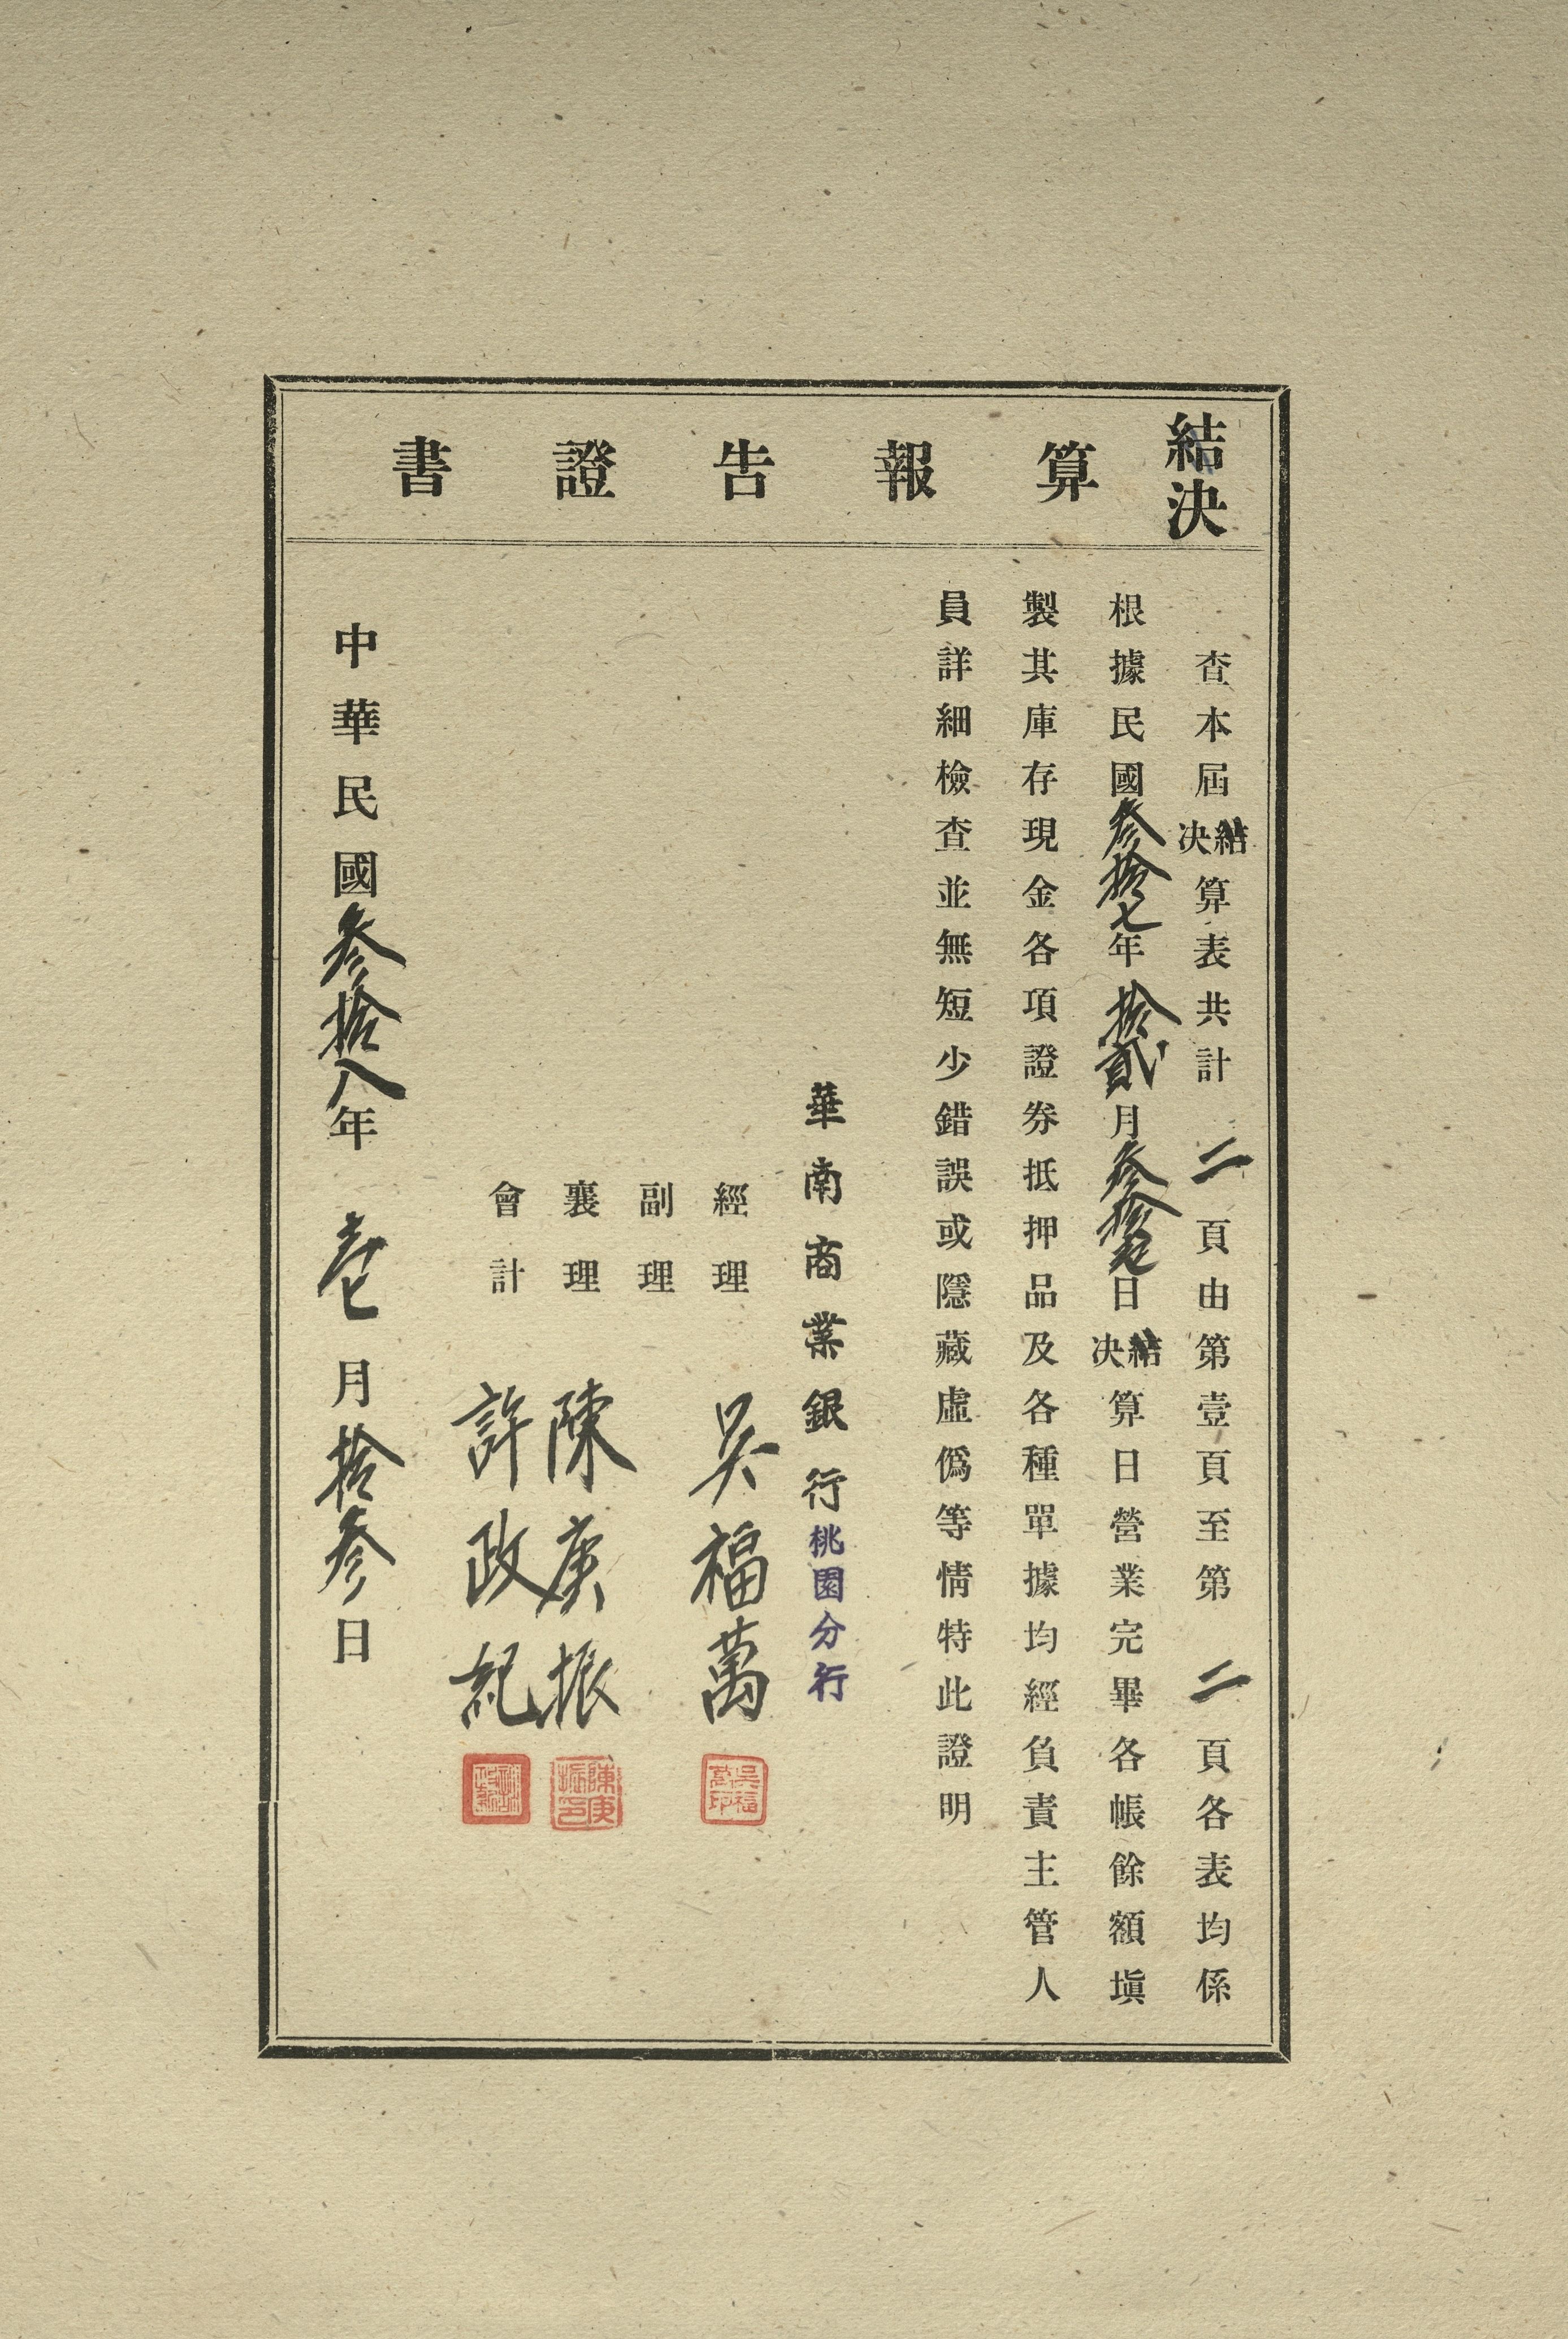 結決算報告證書
查本屆結決算表共計二頁由第壹頁至第二頁各表均係
根據民國叁拾七年拾貳月叁拾壱日結決算日營業完畢各帳餘額塡
製其庫存現金各項證券抵押品及各種單據均經負責主管人
員詳細檢查並無短少錯誤或隱藏虛僞等情特此證明
華南商業銀行桃園分行
經理 吳福萬 吳福萬印
副理
襄理 陳庚振 陳庚振印
會計 許政記
中華民國叁拾八年壱月拾叁日